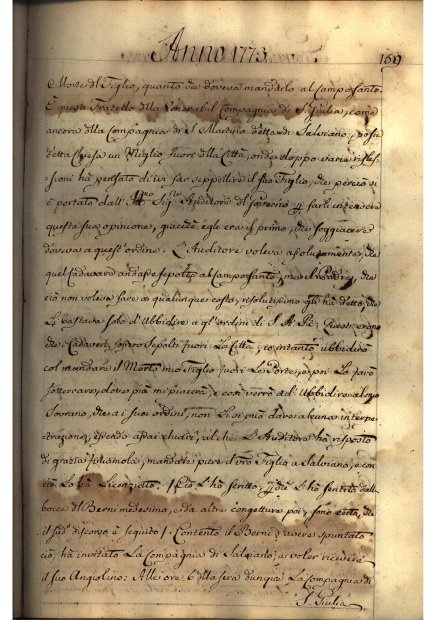 Anno 1773. 169
Morte del Figlio, quanto che doveva mandarlo al Camposanto.
È questi Fratello della Venerabil Compagnia di S. Giulia, come
ancora della Compagnia di S. Martino detta di Salviano, posta
detta Chiesa un Miglio fuori della Città, onde doppo varie rifles-
sioni hà pensato di ivi far seppellire il suo Figlio, che perciò si
è portato dall' Sig.re Auditore del Governo p farli intendere
questa sua opinione, giacché egli era il primo, che soggiacere
doveva a quest' ordine. L'Auditore voleva assolutamente, che
quel Cadavere andasse sepolto al Camposanto, ma il Padre, che
ciò non voleva fare a qualunque costo, risolutissimo gli hà detto, che
Le bastava solo d'Ubbidire a gl'ordini di S. A. R.
che i Cadaveri fossero Sepolti fuori La Città, io intanto ubbidirò
col mandare il Morto mio Figlio fuori Le Porte, e poi Lo farò
sotterrare, dove più mi piacerà, e con verrò ad' Ubbidire al mio
Sovrano, che a i suoi ordini, non Le si può dare alcuna interpe-
trazione, essendo assai chiari, al che L'Auditore hà risposto
di grazia finiamola, mandate pure il vro Figlio a Salviano, e con
ciò Lo hà Licenziato. / Ciò L'hò scritto, p che L'hò sentito dalla
bocca del Berni medesimo, e da altre congetture poi, sono certo, che
il suo discorso è seguito /. Contento il Berni d'avere spuntato
ciò, hà invitato La Compagnia di Salviano, a voler ricevere
il suo Angiolino: Alle ore 6 della sera dunque La Compagnia di
S. Giulia